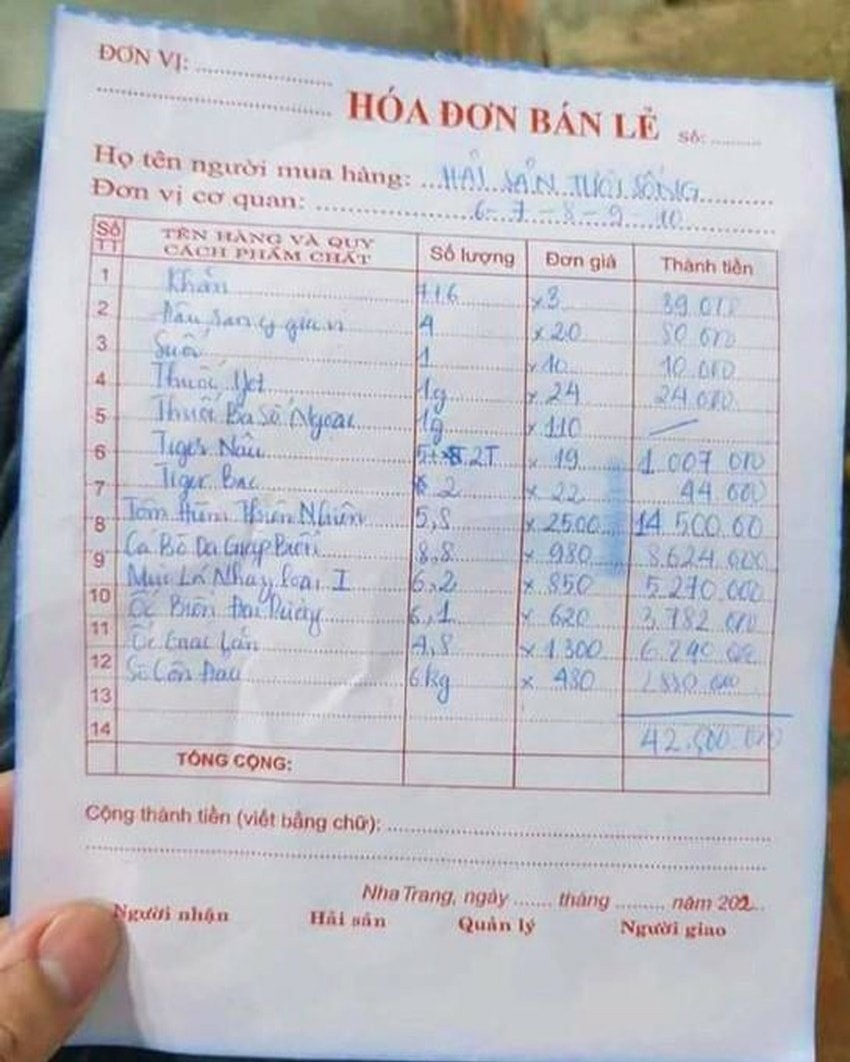 ĐƠN VỊ: ....................
....................
HÓA ĐƠN BÁN LẺ Số: ........
Họ tên người mua hàng: HẢI SẢN TƯƠI SỐNG
Đơn vị cơ quan: 6-7-8-9-10
Số TT TÊN HÀNG VÀ QUY CÁCH PHẨM CHẤT Số lượng Đơn giá Thành tiền
1 Khăn 7+6 x3 39.000
2 gia vị 4 x20 80 000
3 Suối 1 x10 10.000
4 Thuốc Jet 1g x 24 24.000
5 Thuốc Ba Số Ngoại 1g x 110 —
6 Tiger Nâu 2T x 19 1.007 000
7 Tiger Bạc 2 x 22 44 000
8 Tôm Hùm Thiên Nhiên 5,8 x 2500 14 500.00
9 Cá Bò Da Giáp Biển 8,8 x 980 8.624.000
Mực Lá Nháy loại I 6,2 x 850 5.270.000
10 Ốc Biển Đại Dương 6,1 x 620 3.782 000
11 Ốc Lần 4,8 x 1300 6.240 00
12 Sò Côn Đảo 6kg x 480 2880 000
13
14 42.500.000
TỔNG CỘNG:
Cộng thành tiền (viết bằng chữ): ....................
....................
Nha Trang, ngày ....... tháng ......... năm 202...
Người nhận Hải sản Quản lý Người giao